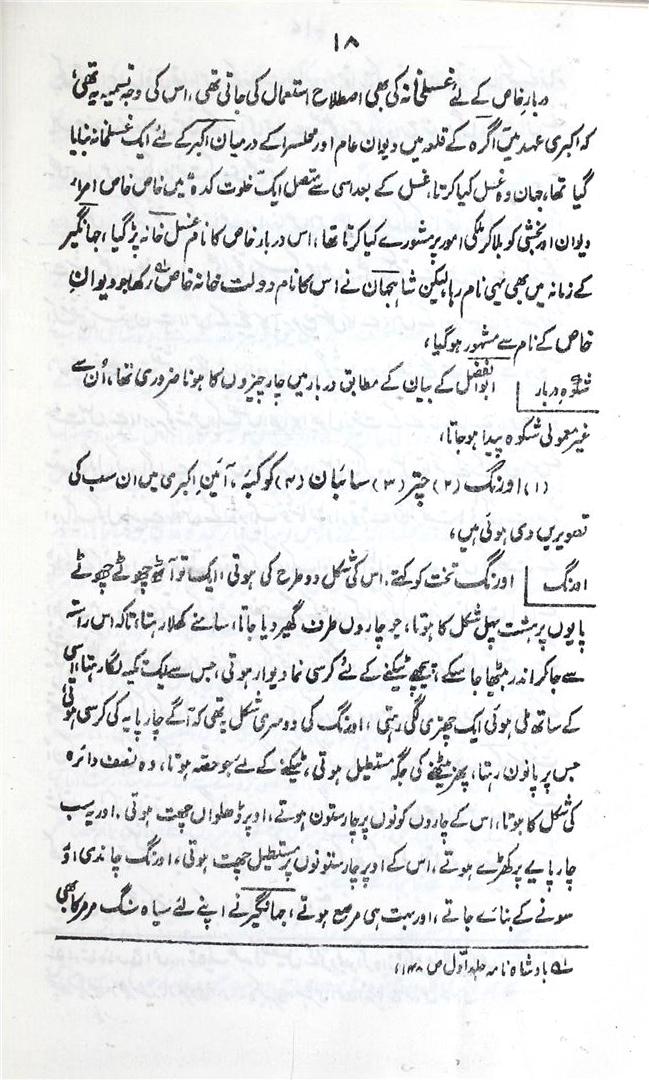 ۱۸
دربارِ خاص کے لئے غسلخانہ کی بھی اصطلاح استعمال کی جاتی تھی، اس کی وجہ تسمیہ یہ تھی،
کہ اکبری عہد میں آگرہ کے قلعہ میں دیوان عام اور محلسرا کے درمیان اکبر کے لئے ایک غسلخانہ بنایا
گیا تھا، جہان وہ غسل کیا کرتا، غسل کے بعد اسی سے متصل ایک خلوت کدہ میں خاص خاص امراء
دیوان اور بخشی کو بلا کر ملکی امور پر مشورے کیا کرتا تھا، اس دربار خاص کا نام غسل خانہ پڑ گیا، جہانگیر
کے زمانہ میں بھی یہی نام رہا لیکن شاہجہان نے اس کا نام دولت خانہ خاص رکھا جو دیوانِ
خاص کے نام سے مشہور ہو گیا،
شکوہِ دربار ابوالفضل کے بیان کے مطابق دربار میں چار چیزوں کا ہونا ضروری تھا، اُن سے
غیر معمولی شکوہ پیدا ہو جاتا،
(۱) اورنگ (۲) چتر (۳) سائبان (۴) کوکبہ، آئینِ اکبری میں ان سب کی
تصویریں دی ہوئی ہیں،
اورنگ اورنگ تخت کو کہتے، اس کی شکل دو طرح کی ہوتی، ایک تو آٹھ چھوٹے چھوٹے
پایوں پر ہشت پہل شکل کا ہوتا، جو چاروں طرف گھیر دیا جاتا، سامنے کھلا رہتا، تاکہ اس راستہ
سے جا کر اندر بیٹھا جا سکے، پیچھے ٹیکنے کے لئے کرسی نما دیوار ہوتی، جس سے ایک تکیہ لگا رہتا، اسی
کے ساتھ ملی ہوئی ایک چھتری لگی رہتی، اورنگ کی دوسری شکل یہ تھی کہ آگے چار پایہ کی کرسی ہوتی
جس پر پانون رہتا، پھر بیٹھنے کی جگہ مستطیل ہوتی، ٹیکنے کے لئے جو حصہ ہوتا، وہ نصف دائرہ
کی شکل کا ہوتا، اس کے چاروں کونوں پر چار ستون ہوتے، اوپر ڈھلواں چھت ہوتی، اور یہ سب
چار پایے پر کھڑے ہوتے، اس کے اوپر چار ستونوں پر مستطیل چھت ہوتی، اورنگ چاندی اور
سونے کے بنائے جاتے، اور بہت ہی مرصع ہوتے، جہانگیر نے اپنے لئے سیاہ سنگ مرمر کا بھی
لہ بادشاہ نامہ جلد اوّل ص ۱۴۸،